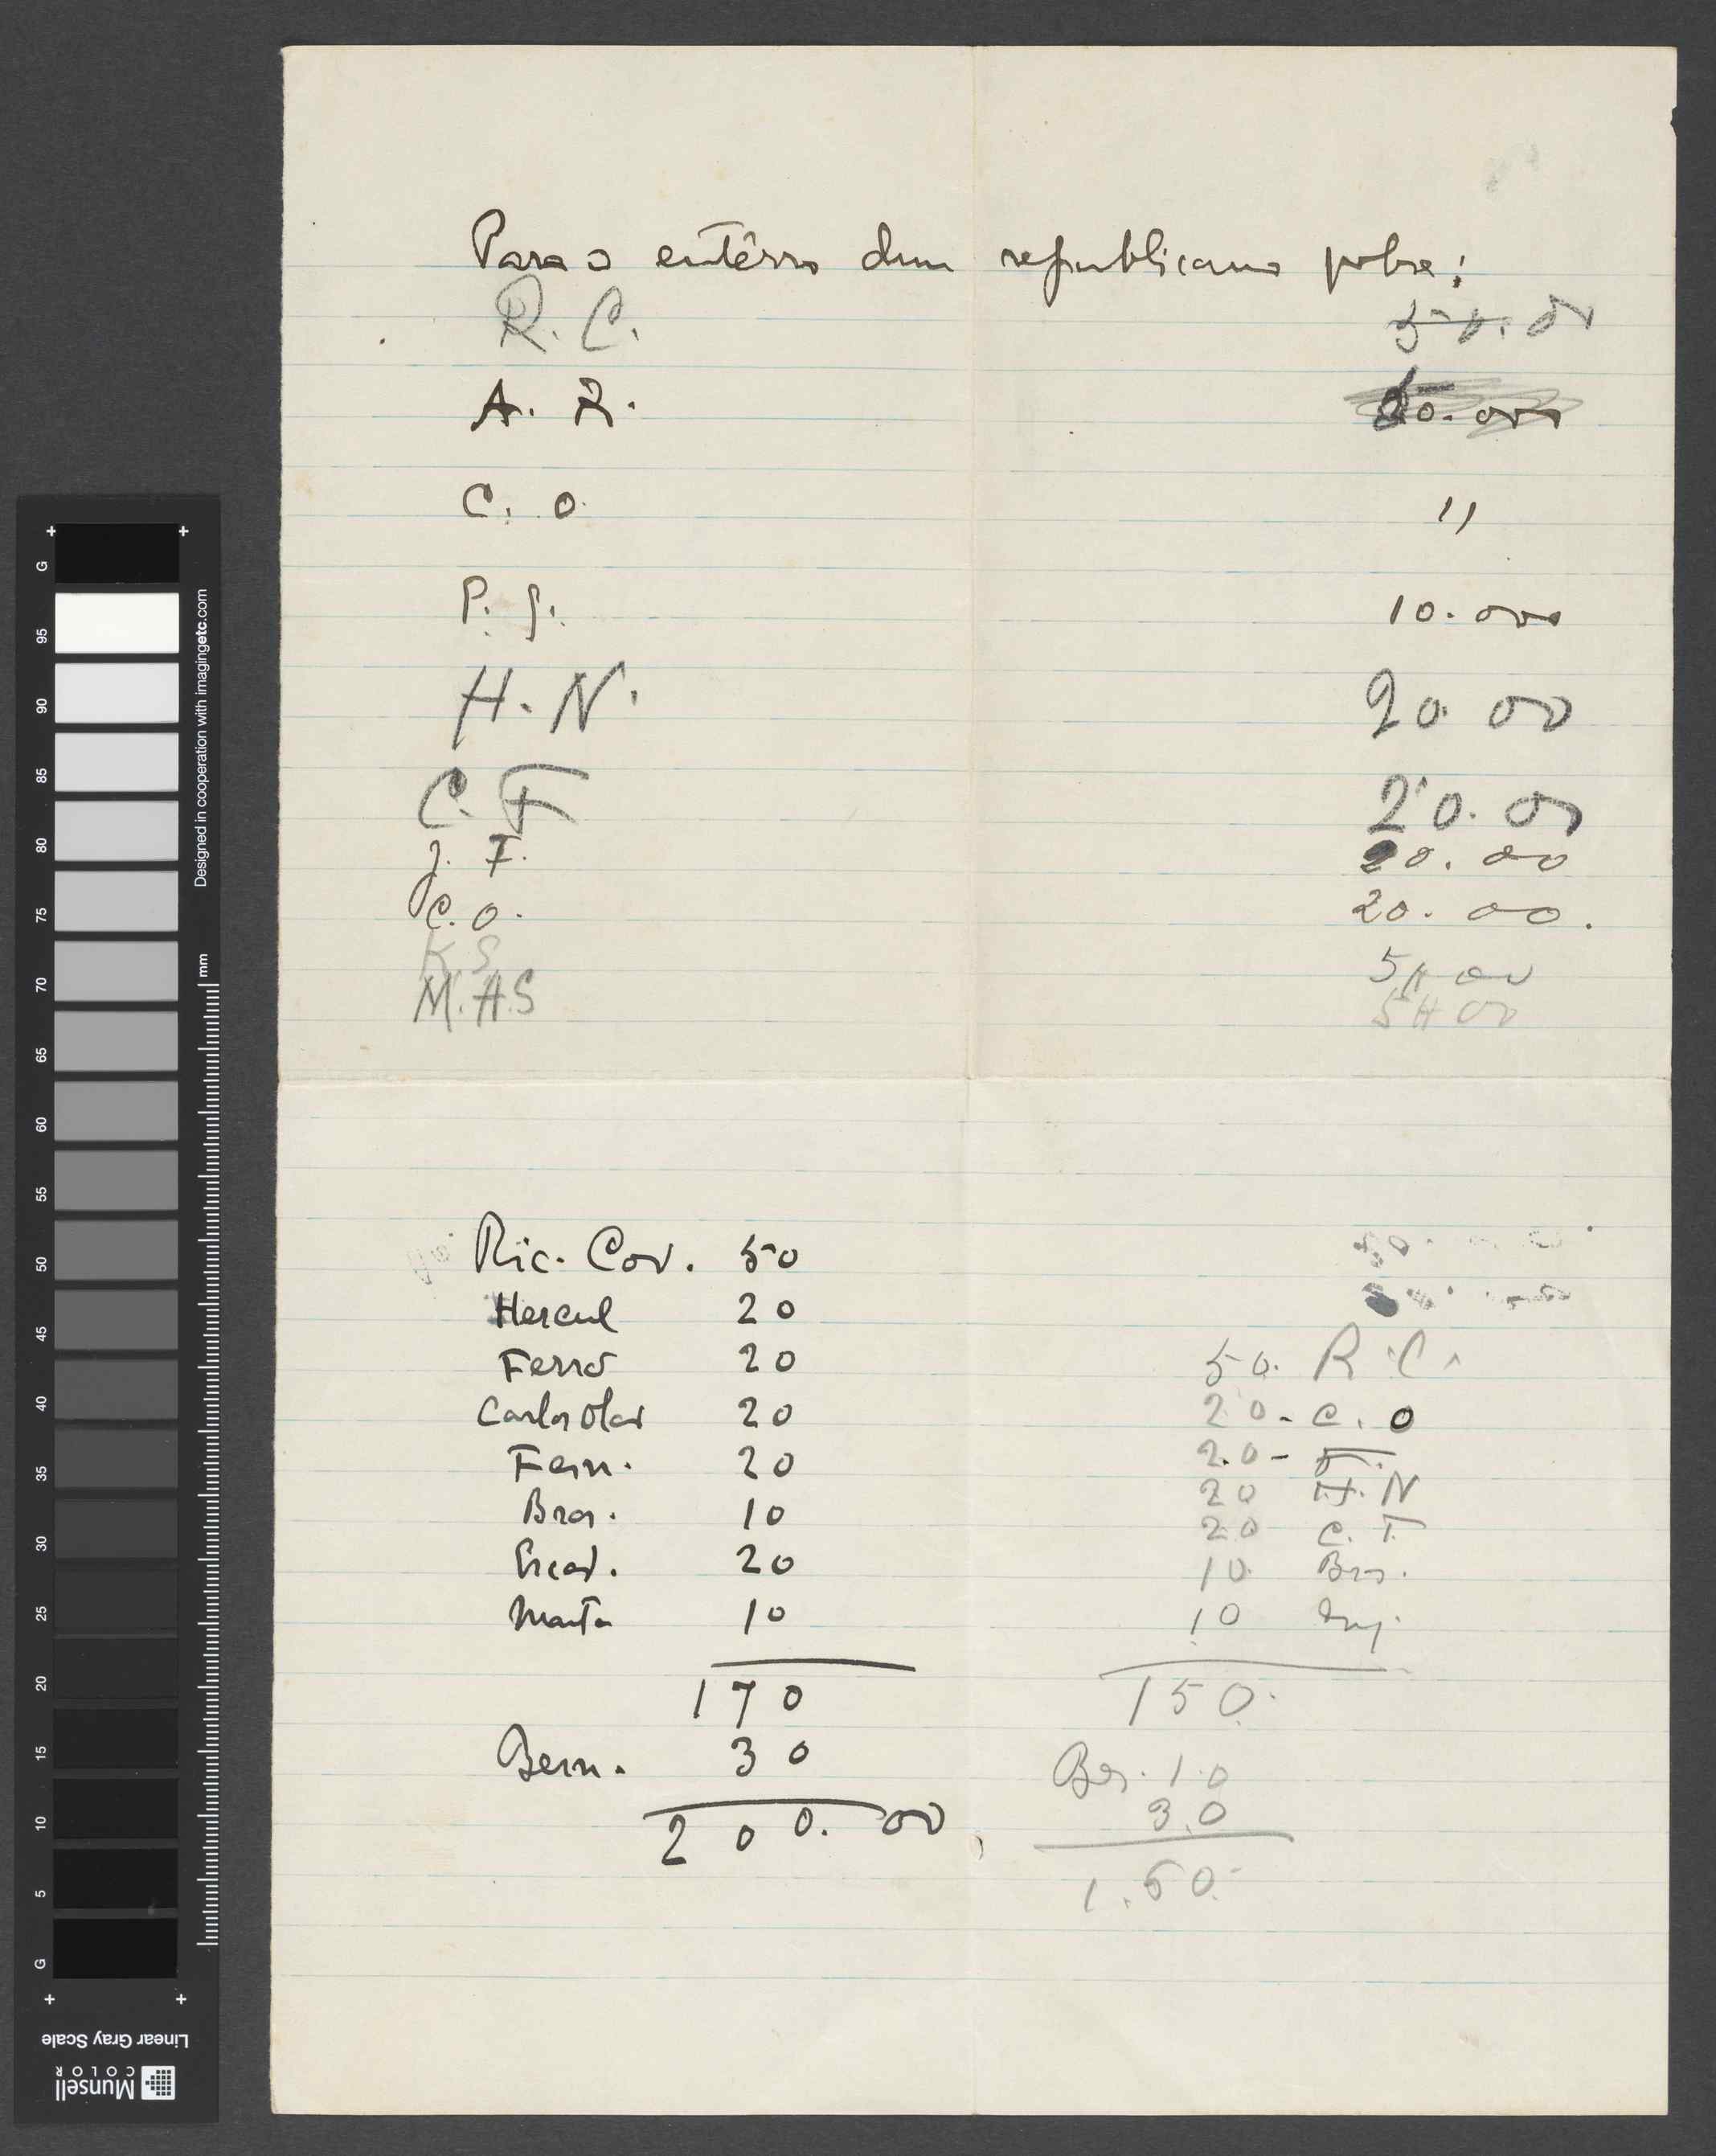 Para o entêrro dum republicano pobre:
R. C. 50.00
A. R. 20.000
C. O. "
P. J. 10.000
H. N. 20 00
C. F 20.00
J. F. 20.00
C. O. 20.00.
K S 5$00
M. A. S 5$00
Ric. Cov. 50
Hercul 20
Ferro 20 50. R. C.
Carlos Olav 20 20 - C. O
Fern. 20 20 - F.
20 H. N
Bras. 10 20 C. F.
20 10 Bras.
Marta 10 10
170 150.
Bern. 30 Ber. 10
200.00 30
1.50.
G 95 90 85 80 75 70 65 60 55 50 45 40 35 30 25 20 15 10 5 G
mm
Designed in cooperation with imagingetc.com
Linear Gray Scale
Munsell
COLOR